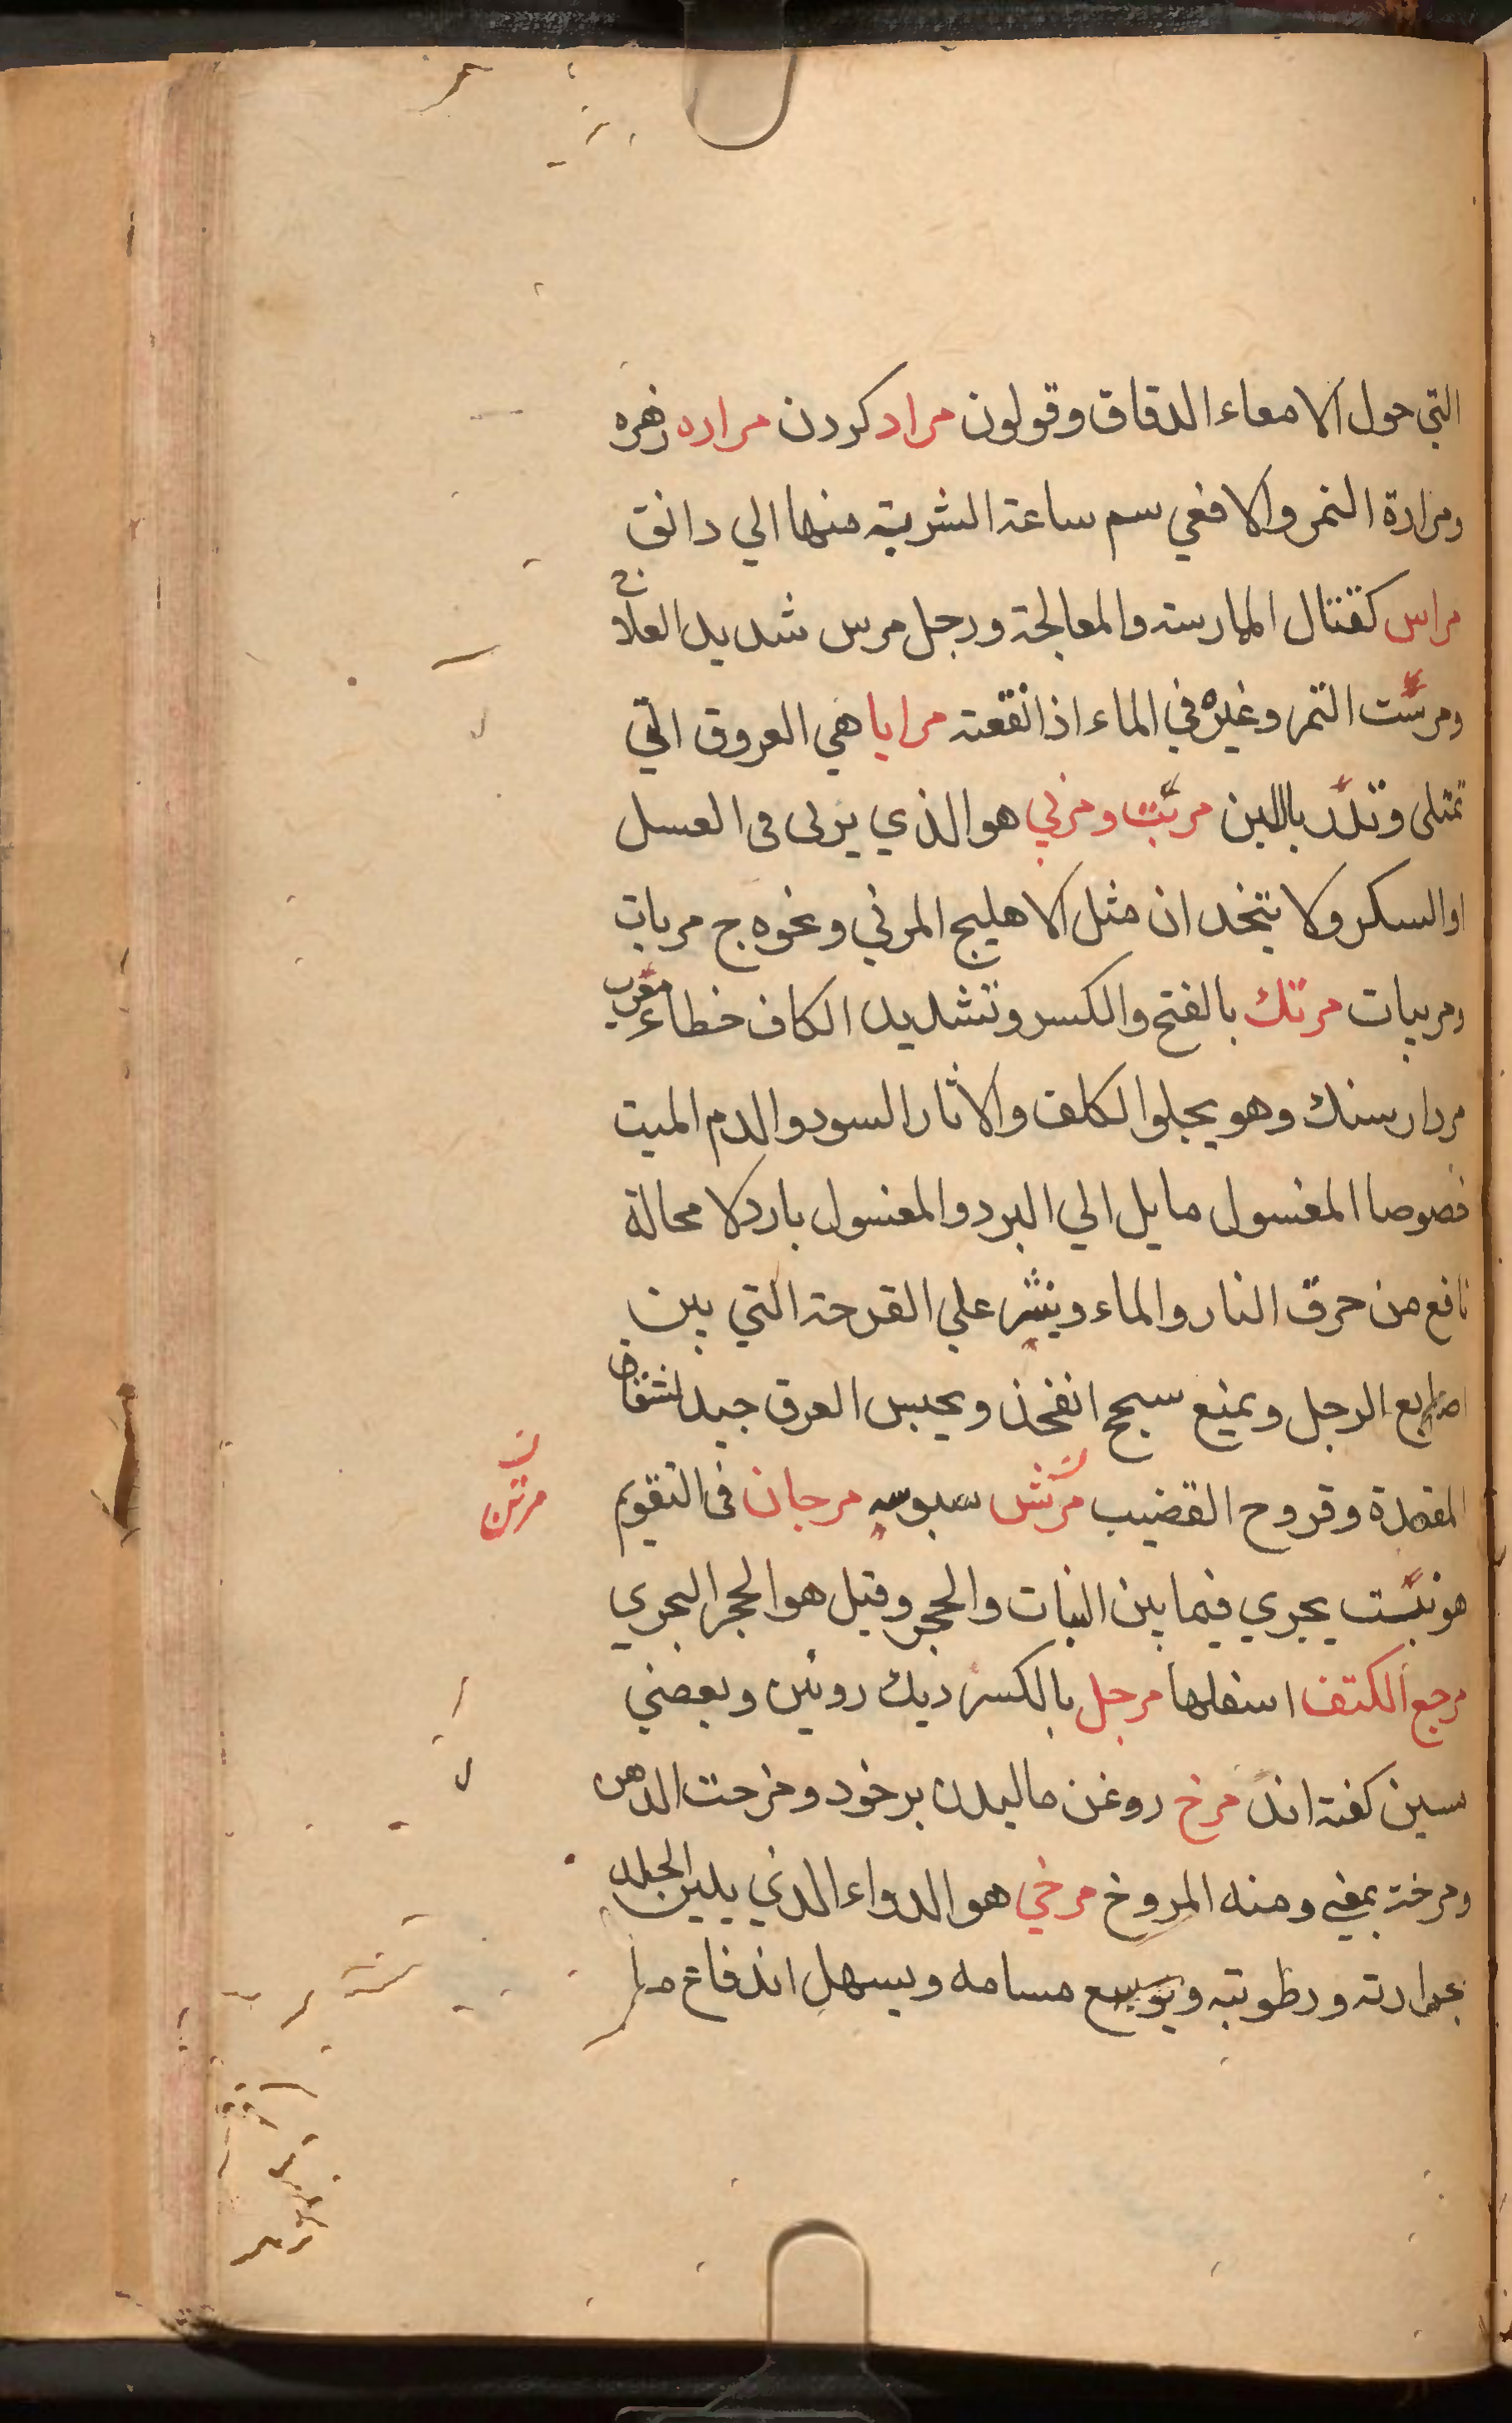 التي حول الامعاء الدقاق وقولون مراد كردن مراره زهره
ومرارة النمر والافعي سم ساعة الشربة منها الي دانق
مراس كقتال الممارسة والمعالجة ورجل مرس شديد العلاج
ومرست التمر وغيره في الماء اذا نقعته مرايا هي العروق التي
تمتلى وتدر باللبن مربب ومربي هو الذي يربى فى العسل
او السكر ولا يتخذ ان مثل الاهليج المربي ونحوه ج مربات
ومربيات مرتك بالفتح والكسر وتشديد الكاف خطاء معرب
مردار سنك وهو يجلوا لكلف والاثار السود والدم الميت
خصوصا المغسول مايل الي البرد والمغسول بارد لا محالة
نافع من حرق النار والماء وينثر علي القرحة التي بين
اصابع الرجل ويمنع سحج الفخذ ويحبس العرق جيد لشقاق
المقعدة وقروح القضيب مرتش سبوسه مرجان فى التقويم
مرتن
هو نبت يجري فيما بين النبات والحجر وقيل هو الحجر البحري
مرجع الكتف اسفلها مرجل بالكسر ديك روئين وبعضي
سين كفته اند مرخ روغن ماليدن بر خود ومرخت الدهن
ومرخته بمعني ومنه المروخ مرخي هو الدواء الذي يلين الجلد
بحرارته ورطوبته ويوسع مسامه ويسهل اندفاع ما